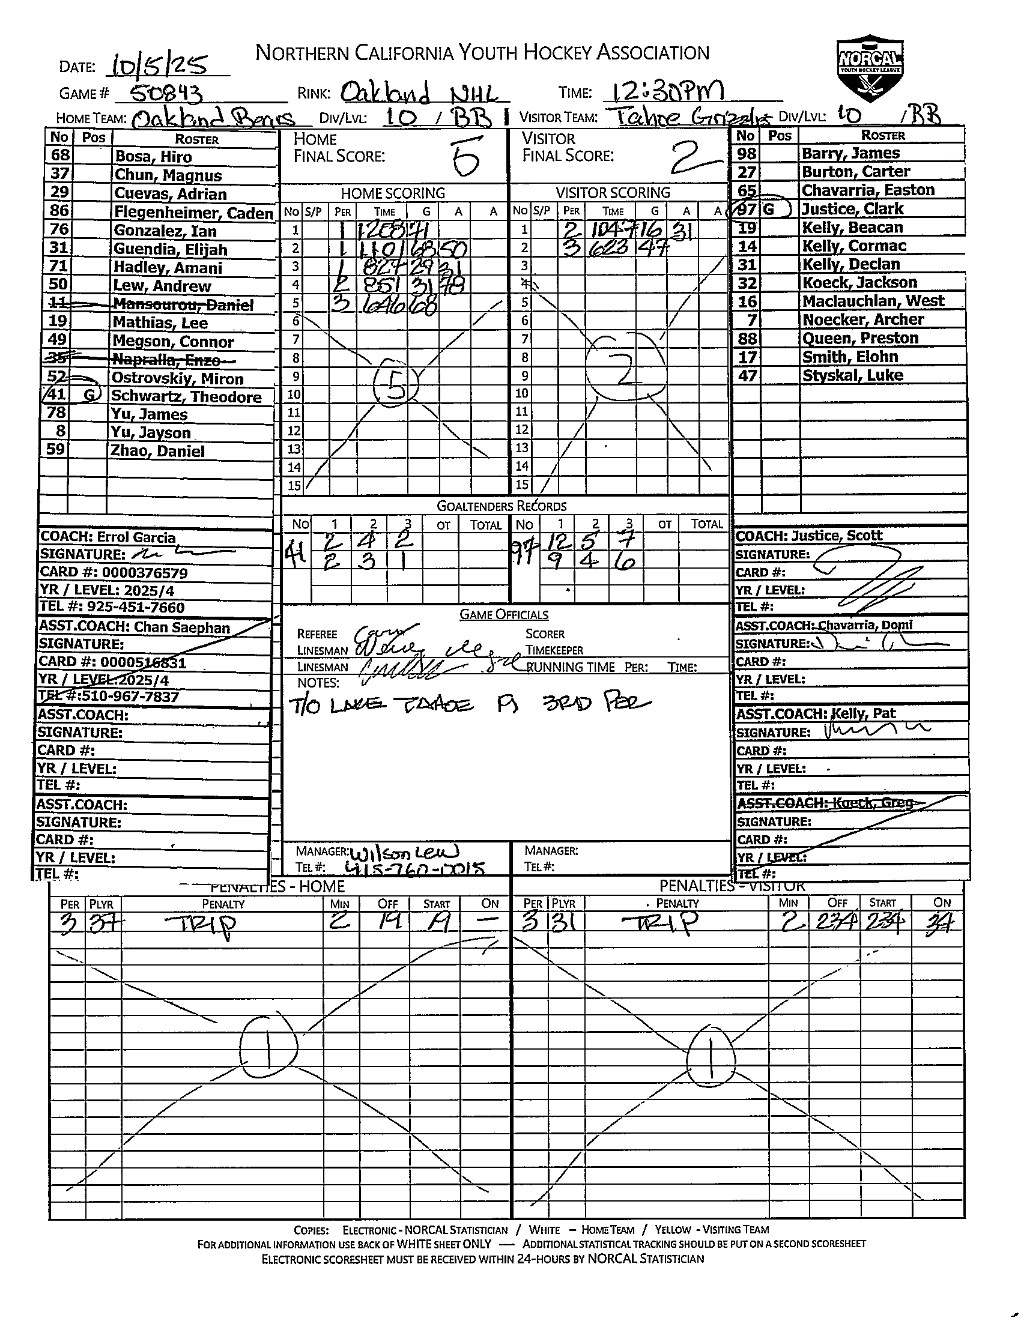 NORTHERN CALIFORNIA YOUTH HOCKEY ASSOCIATION
NORCAL
YOUTH HOCKEY LEAGUE
DATE: 10/5/25
GAME # 50843 RINK: Oakland NHL TIME: 12:30PM
HOME TEAM: Oakland Bears DIV/LVL: 10 / BB VISITOR TEAM: Tahoe Grizzlies DIV/LVL: 10 / BB
No Pos ROSTER
68 Bosa, Hiro
37 Chun, Magnus
29 Cuevas, Adrian
86 Flegenheimer, Caden
76 Gonzalez, Ian
31 Guendia, Elijah
71 Hadley, Amani
50 Lew, Andrew
11 Mansourou, Daniel
19 Mathias, Lee
49 Megson, Connor
35 Napralla, Enzo
52 Ostrovskiy, Miron
41 G Schwartz, Theodore
78 Yu, James
8 Yu, Jayson
59 Zhao, Daniel
HOME FINAL SCORE: 5
VISITOR FINAL SCORE: 2
HOME SCORING
No S/P PER TIME G A A
1 1 1208 71
2 1 1101 68 50
3 2 827 29 31
4 2 851 31 78
5 3 646 68
6
7
8
9
10
11
12
13
14
15
5
VISITOR SCORING
No S/P PER TIME G A A
1 2 1047 16 31
2 3 623 47
3
4
5
6
7
8
9
10
11
12
13
14
15
2
No Pos ROSTER
98 Barry, James
27 Burton, Carter
65 Chavarria, Easton
97 G Justice, Clark
19 Kelly, Beacan
14 Kelly, Cormac
31 Kelly, Declan
32 Koeck, Jackson
16 Maclauchlan, West
7 Noecker, Archer
88 Queen, Preston
17 Smith, Elohn
47 Styskal, Luke
GOALTENDERS RECORDS
NO 1 2 3 OT TOTAL NO 1 2 3 OT TOTAL
41 2 4 2 97 12 5 7
2 3 1 9 4 6
COACH: Errol Garcia
SIGNATURE:
CARD #: 0000376579
YR / LEVEL: 2025/4
TEL #: 925-451-7660
ASST.COACH: Chan Saephan
SIGNATURE:
CARD #: 0000516831
YR / LEVEL: 2025/4
TEL #:510-967-7837
ASST.COACH:
SIGNATURE:
CARD #:
YR / LEVEL:
TEL #:
ASST.COACH:
SIGNATURE:
CARD #:
YR / LEVEL:
TEL #:
GAME OFFICIALS
REFEREE SCORER
LINESMAN TIMEKEEPER
LINESMAN RUNNING TIME PER: TIME:
NOTES:
T/O LAKE TAHOE 3RD PER
MANAGER: Wilson Lew MANAGER:
TEL #: 415-760-0015 TEL #:
COACH: Justice, Scott
SIGNATURE:
CARD #:
YR / LEVEL:
TEL #:
ASST.COACH: Chavarria, Domi
SIGNATURE:
CARD #:
YR / LEVEL:
TEL #:
ASST.COACH: Kelly, Pat
SIGNATURE:
CARD #:
YR / LEVEL:
TEL #:
ASST.COACH: Koeck, Greg
SIGNATURE:
CARD #:
YR / LEVEL:
TEL #:
PENALTIES - HOME
PER PLYR PENALTY MIN OFF START ON
3 37 TRIP 2 19 19 —
1
PENALTIES - VISITOR
PER PLYR PENALTY MIN OFF START ON
3 31 TRIP 2 234 234 34
1
COPIES: ELECTRONIC - NORCAL STATISTICIAN / WHITE – HOME TEAM / YELLOW - VISITING TEAM
FOR ADDITIONAL INFORMATION USE BACK OF WHITE SHEET ONLY — ADDITIONAL STATISTICAL TRACKING SHOULD BE PUT ON A SECOND SCORESHEET
ELECTRONIC SCORESHEET MUST BE RECEIVED WITHIN 24-HOURS BY NORCAL STATISTICIAN